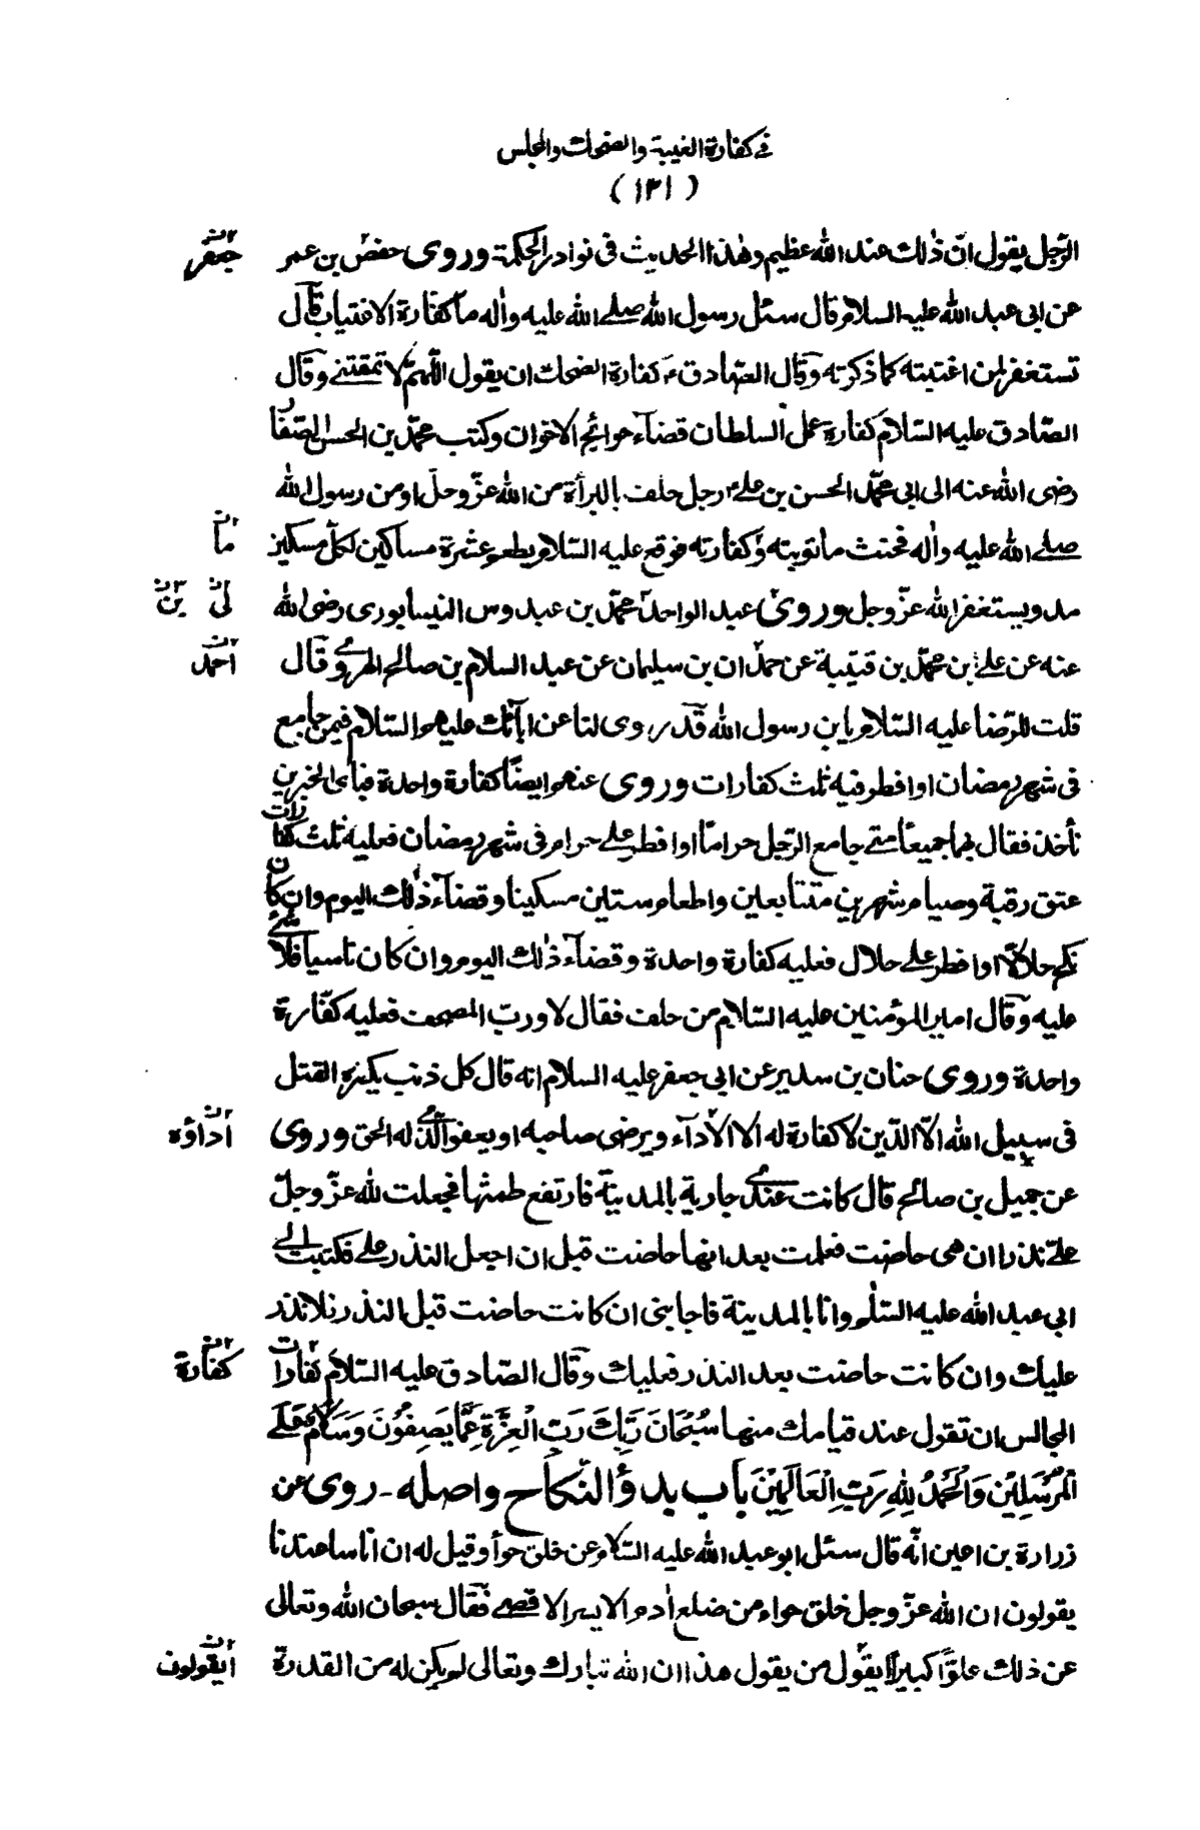 في كفارة الغيبة والضحك والمجلس
(١٣١)
الرّجل يقول انّ ذٰلك عند الله عظيم وهٰذا الحديث فى نوادر الحكمة وروى حفص بن عمر جعفر
عن ابى عبد الله عليه السلام قال سئل رسول الله صلے الله عليه واٰله ما كفّارة الاغتياب قال
تستغفر لمن اغتبته كما ذكرته وقال الصّادق ع كفارة الضحك ان يقول اللّٰهمّ لا تمقتنے وقال
الصّادق عليه السّلام كفارة عمل السلطان قضآء حوائج الاخوان وكتب محمّد بن الحسن الصّفّار
رضى الله عنه الى ابى محمّد الحسن بن علے ع رجل حلف بالبرأة من الله عزّ وجلّ او من رسول الله
صلے الله عليه واٰله فحنث ما توبته وكفارته فوقّع عليه السّلام يطعم عشرة مساكين لكلّ مسكين ما
مد ويستغفر الله عزّ وجل وروىٰ عبد الواحد محمّد بن عبدوس النيسابورى رضى الله لى بن
عنه عن علے بن محمّد بن قتيبة عن حمدٰان بن سليمان عن عبد السلام بن صالح الهروے وقال احمد
قلت للرّضا عليه السّلام يابن رسول الله قد روى لنا عن اٰبآئك عليهم السّلام فيمن جامع
فى شهر رمضان او افطر فيه ثلٰث كفارات وروى عنهم ايضًا كفارة واحدة فباىّ الخبرين
نأخذ فقال بهما جميعًا متے جامع الرّجل حرامًا او افطر علے حرام فى شهر رمضان فعليه ثلٰث كفارات
عتق رقبة وصيام شهرين متتابعين واطعام ستين مسكينا وقضآء ذٰلك اليوم وان كان
نكح حلالًا او افطر علے حلال فعليه كفارة واحدة وقضآء ذٰلك اليوم وان كان ناسيا فلا شئے
عليه وقال امير المؤمنين عليه السّلام من حلف فقال لا وربّ المصحف فعليه كفّارة
واحدة وروى حنان بن سدير عن ابى جعفر عليه السلام انه قال كل ذنب يكفره القتل
فى سبيل الله الّا الدّين لا كفارة له الا الاداء ويرضى صاحبه او يعفو الّذے له الحق وروى اداؤه
عن جميل بن صالح قال كانت عندے جارية بالمدينة فارتفع طمثها فجعلت لله عزّ وجلّ
علےّ نذرا ان هى حاضت فعلمت بعد انها حاضت قبل ان اجعل النذر علے فكتبت الے
ابى عبد الله عليه السّلٰم وانا بالمدينة فاجابنى ان كانت حاضت قبل النذر فلا نذر
عليك وان كانت حاضت بعد النذر فعليك وقال الصّادق عليه السّلام كفارات كفارة
المجالس ان تقول عند قيامك منها سُبْحَانَ رَبِّكَ رَبِّ الْعِزَّةِ عَمَّا يَصِفُوْنَ وَسَلَامٌ عَلَے
الْمُرْسَلِيْنَ وَالْحَمْدُ لِلّٰهِ رَبِّ الْعَالَمِيْنَ باب بدؤ النّكاح واصله - روى عن
زرارة بن اعين انّه قال سئل ابو عبد الله عليه السّلام عن خلق حوأ وقيل له ان اناسا عندنا
يقولون ان الله عزّ وجل خلق حواء من ضلع اٰدم الايسر الاقصے فقال سبحان الله وتعالى
عن ذلك علوًّا كبيرًا يقول من يقول هذا ان الله تبارك وتعالى لم يكن له من القدرة ايقولون